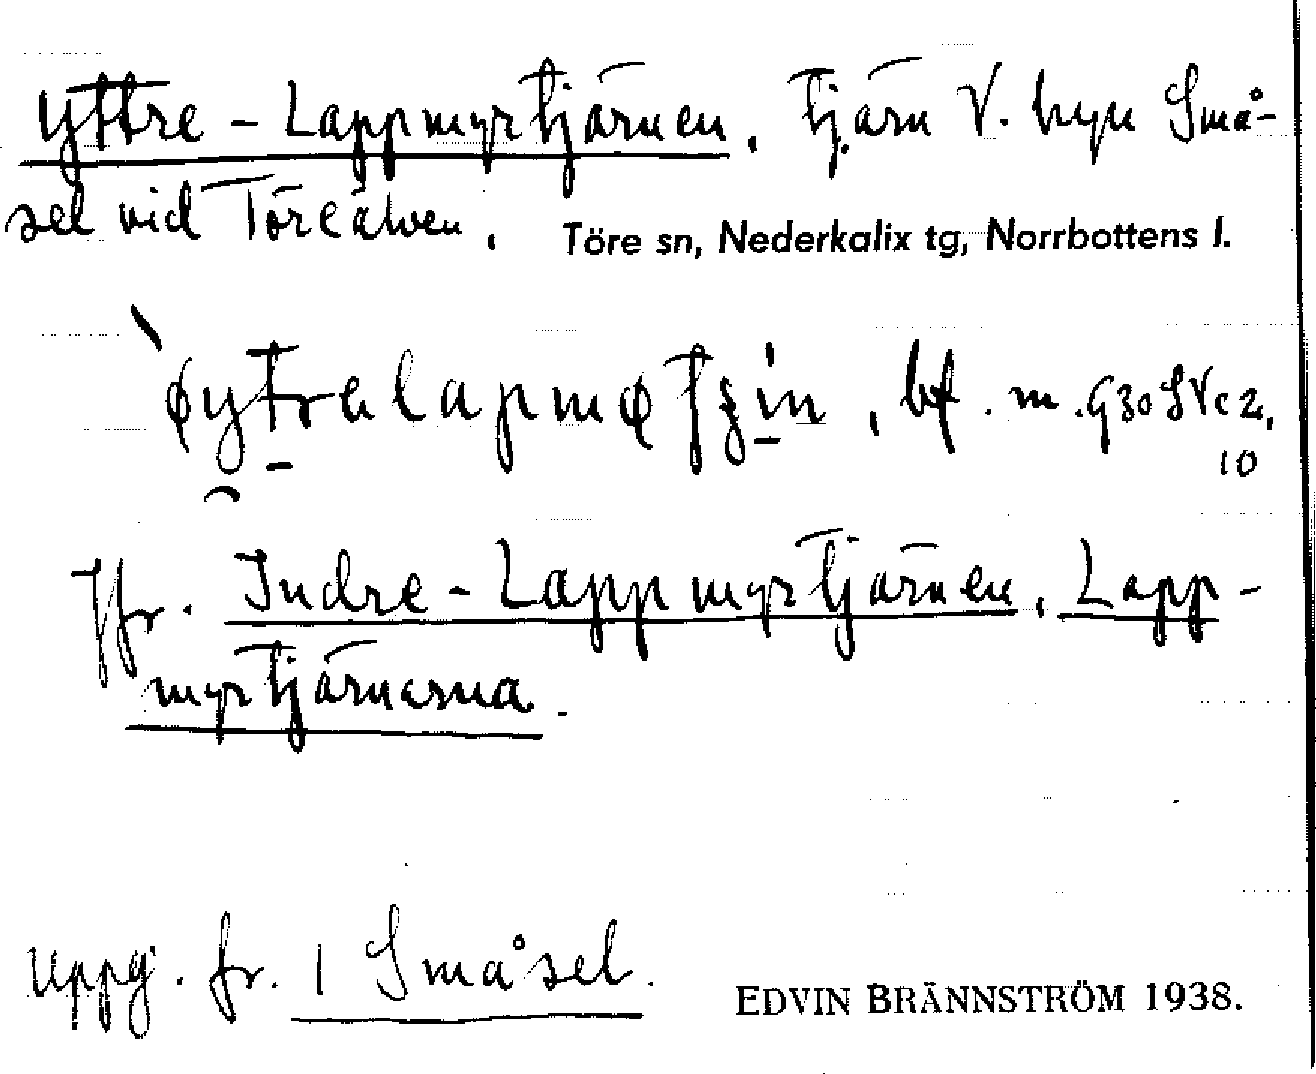 Yttre-Lappmyrtjärnen. Tjärn V. byn Små-
sel vid Töreälven. Töre sn, Nederkalix tg, Norrbottens l.
bf. m. G30SVc2,
10
Jfr. Indre-Lappmyrtjärnen, Lapp-
myrtjärnarna.
Uppg. fr. 1 Småsel. EDVIN BRÄNNSTRÖM 1938.